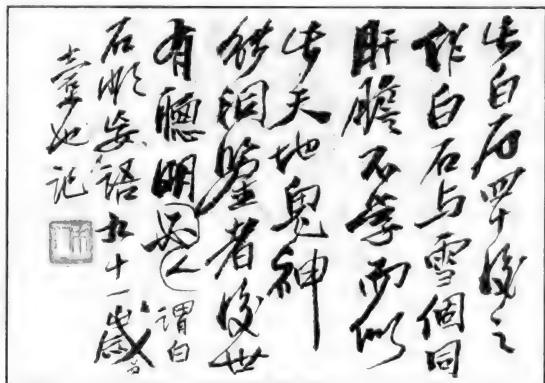 此白石四十後之
作白石与雪個同
肝膽不學而似
此天地鬼神
能洞鑒者後世
有聰明必人謂白
石非妄語九十一歲
也記